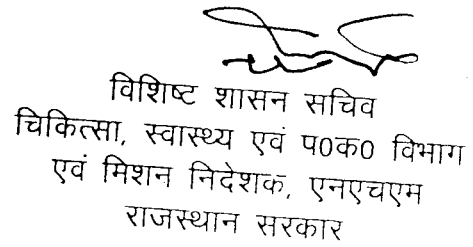 विशिष्ट शासन सचिव
चिकित्सा, स्वास्थ्य एवं प0क0 विभाग
एवं मिशन निदेशक, एनएचएम
राजस्थान सरकार